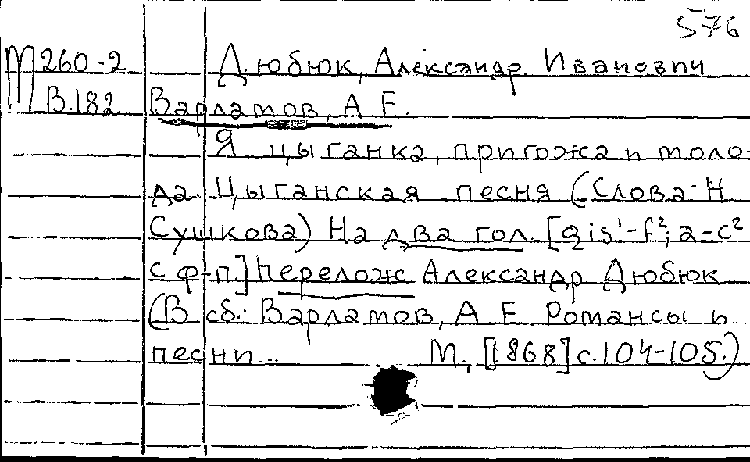 576
М 260-2 Дюбюк, Александр Иванович
В.182 Варламов, А Е.
Я цыганка, пригожа и моло-
да. Цыганская песня (Слова Н
Сушкова) На два гол. [gis¹-f²; a-c²
с ф-п.] Переложс Александр Дюбюк
(В сб.: Варламов, А Е Романсы и
песни... М., [1868] с.104-105.)